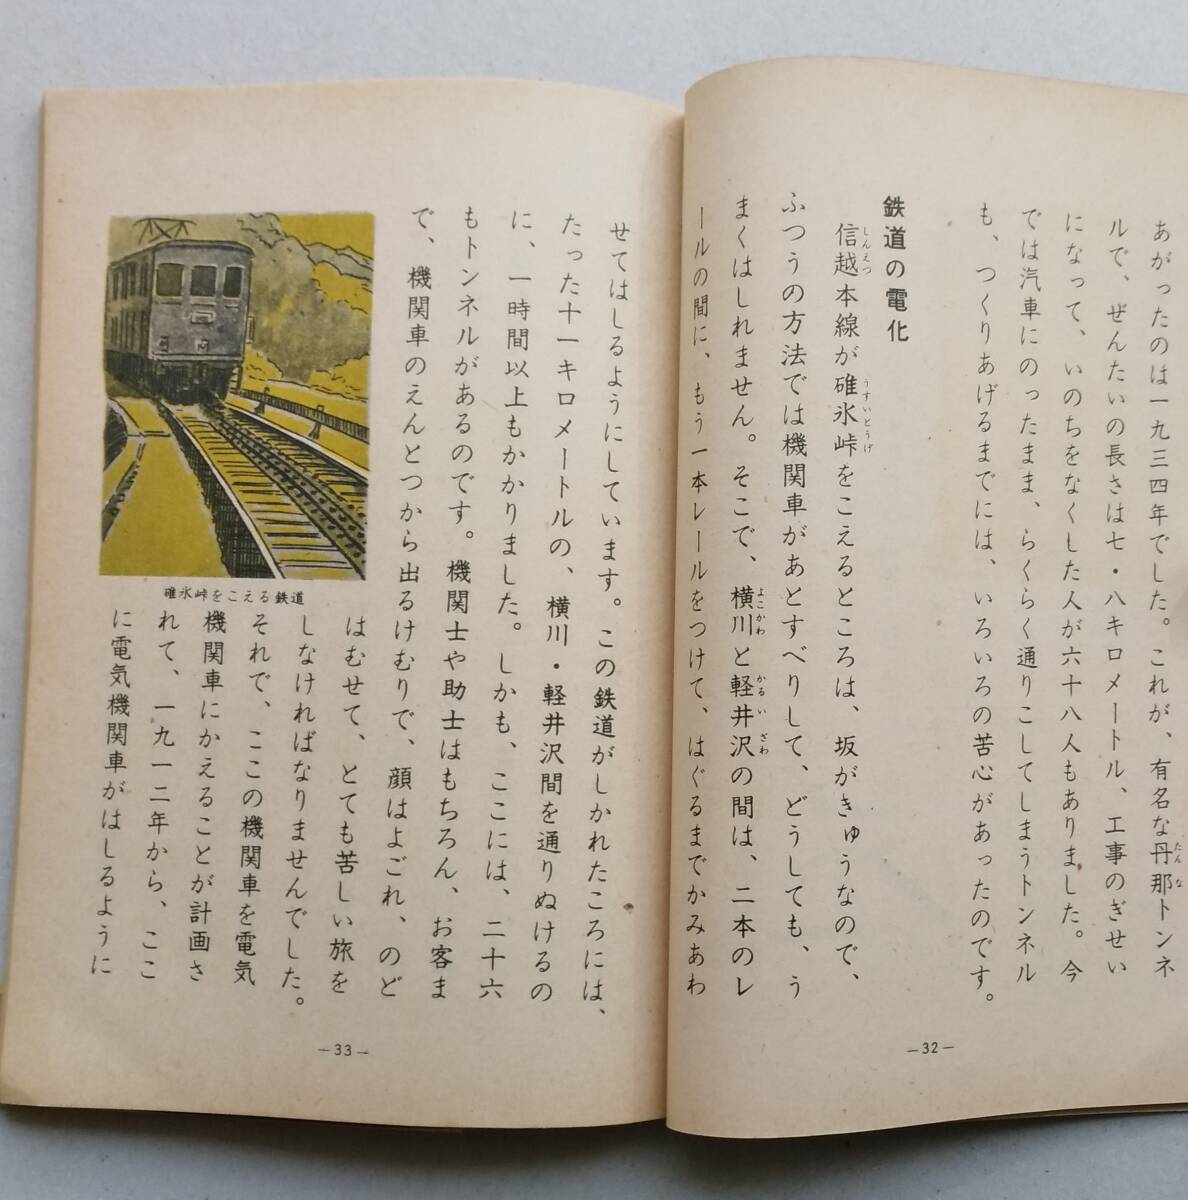 あがったのは一九三四年でした。これが、有名な丹那トンネ
ルで、ぜんたいの長さは七・八キロメートル、工事のぎせい
になって、いのちをなくした人が六十八人もありました。今
では汽車にのったまま、らくらく通りこしてしまうトンネル
も、つくりあげるまでには、いろいろの苦心があったのです。
鉄道の電化
信越本線が碓氷峠をこえるところは、坂がきゅうなので、
ふつうの方法では機関車があとすべりして、どうしても、う
まくはしれません。そこで、横川と軽井沢の間は、二本のレ
ールの間に、もう一本レールをつけて、はぐるまでかみあわ
たんな
しんえつ
うすいとうげ
よこかわ
かるいざわ
—32—
せてはしるようにしています。この鉄道がしかれたころには、
たった十一キロメートルの、横川・軽井沢間を通りぬけるの
に、一時間以上もかかりました。しかも、ここには、二十六
もトンネルがあるのです。機関士や助士はもちろん、お客ま
で、機関車のえんとつから出るけむりで、顔はよごれ、のど
はむせて、とても苦しい旅を
しなければなりませんでした。
それで、ここの機関車を電気
機関車にかえることが計画さ
れて、一九一二年から、ここ
に電気機関車がはしるように
碓氷峠をこえる鉄道
—33—